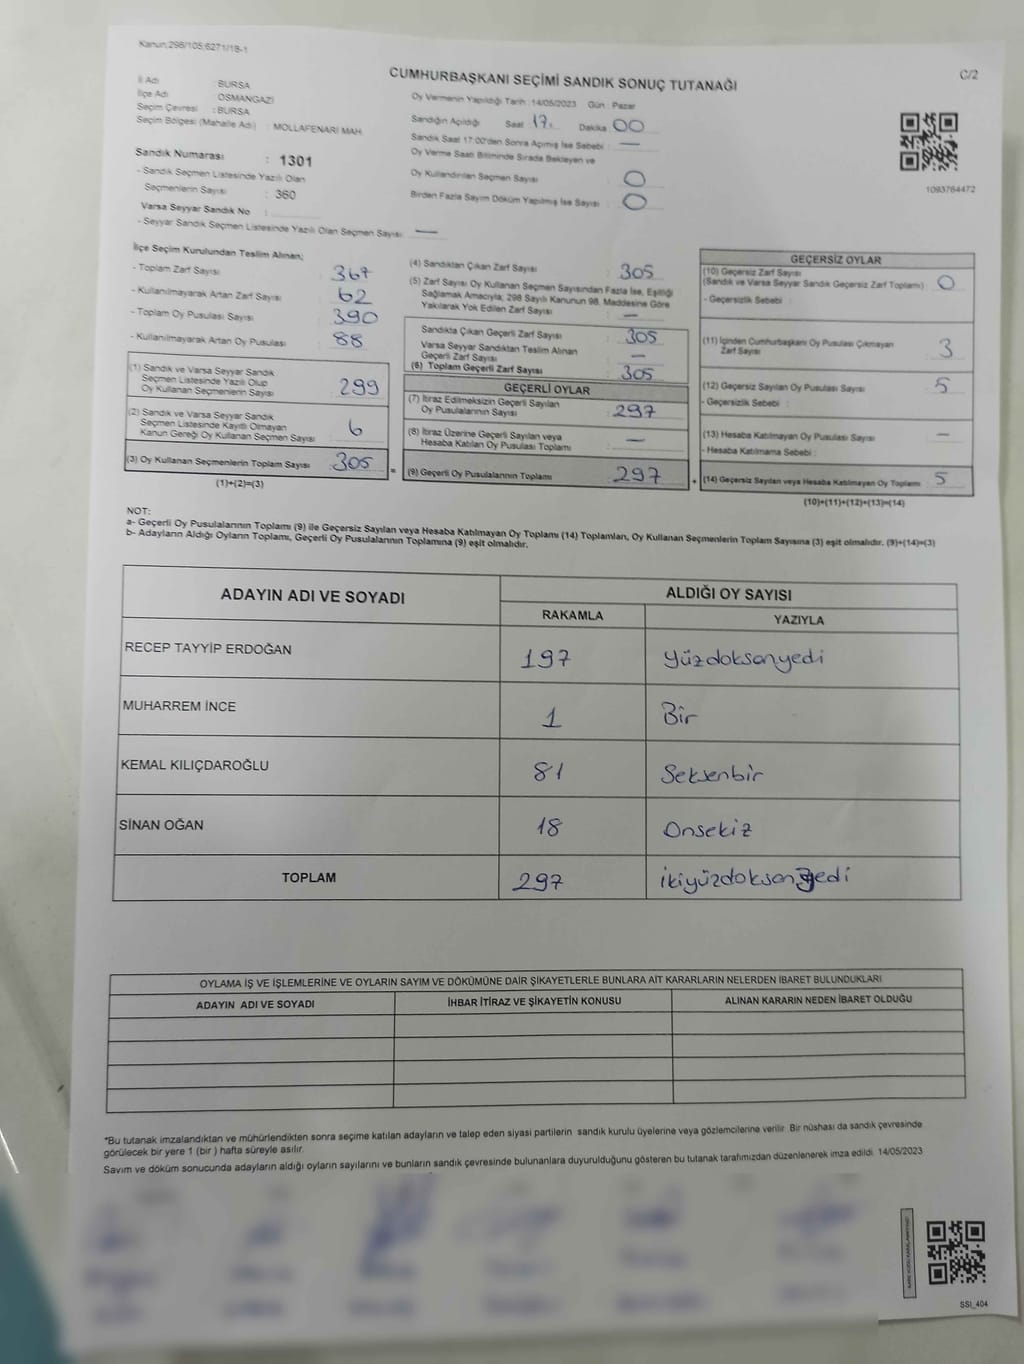 Kanun:298/105;6271/18-1
C/2
CUMHURBAŞKANI SEÇİMİ SANDIK SONUÇ TUTANAĞI
İl Adı : BURSA
İlçe Adı : OSMANGAZİ
Seçim Çevresi : BURSA
Seçim Bölgesi (Mahalle Adı) : MOLLAFENARİ MAH.
Sandık Numarası : 1301
- Sandık Seçmen Listesinde Yazılı Olan
Seçmenlerin Sayısı : 360
Varsa Seyyar Sandık No :
- Seyyar Sandık Seçmen Listesinde Yazılı Olan Seçmen Sayısı: —
Oy Vermenin Yapıldığı Tarih : 14/05/2023 Gün : Pazar
Sandığın Açıldığı Saat 17. Dakika 00
Sandık Saat 17:00'den Sonra Açımış İse Sebebi : —
Oy Verme Saati Bitiminde Sırada Bekleyen ve
Oy Kullandırılan Seçmen Sayısı : 0
Birden Fazla Sayım Döküm Yapılmış İse Sayısı : 0
1093764472
İlçe Seçim Kurulundan Teslim Alınan;
- Toplam Zarf Sayısı : 367
- Kullanılmayarak Artan Zarf Sayısı : 62
- Toplam Oy Pusulası Sayısı : 390
- Kullanılmayarak Artan Oy Pusulası : 88
(1) Sandık ve Varsa Seyyar Sandık
Seçmen Listesinde Yazılı Olup
Oy Kullanan Seçmenlerin Sayısı : 299
(2) Sandık ve Varsa Seyyar Sandık
Seçmen Listesinde Kayıtlı Olmayan
Kanun Gereği Oy Kullanan Seçmen Sayısı : 6
(3) Oy Kullanan Seçmenlerin Toplam Sayısı : 305
(1)+(2)=(3)
(4) Sandıktan Çıkan Zarf Sayısı : 305
(5) Zarf Sayısı Oy Kullanan Seçmen Sayısından Fazla İse, Eşitliği
Sağlamak Amacıyla, 298 Sayılı Kanunun 98. Maddesine Göre
Yakılarak Yok Edilen Zarf Sayısı : —
Sandıkta Çıkan Geçerli Zarf Sayısı : 305
Varsa Seyyar Sandıktan Teslim Alınan
Geçerli Zarf Sayısı : —
(6) Toplam Geçerli Zarf Sayısı : 305
GEÇERLİ OYLAR
(7) İtiraz Edilmeksizin Geçerli Sayılan
Oy Pusulalarının Sayısı : 297
(8) İtiraz Üzerine Geçerli Sayılan veya
Hesaba Katılan Oy Pusulası Toplamı : —
= (9) Geçerli Oy Pusulalarının Toplamı : 297
GEÇERSİZ OYLAR
(10) Geçersiz Zarf Sayısı
(Sandık ve Varsa Seyyar Sandık Geçersiz Zarf Toplamı) : 0
- Geçersizlik Sebebi :
(11) İçinden Cumhurbaşkanı Oy Pusulası Çıkmayan
Zarf Sayısı : 3
(12) Geçersiz Sayılan Oy Pusulası Sayısı : 5
- Geçersizlik Sebebi :
(13) Hesaba Katılmayan Oy Pusulası Sayısı : —
- Hesaba Katılmama Sebebi :
+ (14) Geçersiz Sayılan veya Hesaba Katılmayan Oy Toplamı : 5
(10)+(11)+(12)+(13)=(14)
NOT:
a- Geçerli Oy Pusulalarının Toplamı (9) ile Geçersiz Sayılan veya Hesaba Katılmayan Oy Toplamı (14) Toplamları, Oy Kullanan Seçmenlerin Toplam Sayısına (3) eşit olmalıdır. (9)+(14)=(3)
b- Adayların Aldığı Oyların Toplamı, Geçerli Oy Pusulalarının Toplamına (9) eşit olmalıdır.
ADAYIN ADI VE SOYADI ALDIĞI OY SAYISI
RAKAMLA YAZIYLA
RECEP TAYYİP ERDOĞAN 197 Yüzdoksanyedi
MUHARREM İNCE 1 Bir
KEMAL KILIÇDAROĞLU 81 Seksenbir
SİNAN OĞAN 18 Onsekiz
TOPLAM 297 ikiyüzdoksanyedi
OYLAMA İŞ VE İŞLEMLERİNE VE OYLARIN SAYIM VE DÖKÜMÜNE DAİR ŞİKAYETLERLE BUNLARA AİT KARARLARIN NELERDEN İBARET BULUNDUKLARI
ADAYIN ADI VE SOYADI İHBAR İTİRAZ VE ŞİKAYETİN KONUSU ALINAN KARARIN NEDEN İBARET OLDUĞU
*Bu tutanak imzalandıktan ve mühürlendikten sonra seçime katılan adayların ve talep eden siyasi partilerin sandık kurulu üyelerine veya gözlemcilerine verilir. Bir nüshası da sandık çevresinde
görülecek bir yere 1 (bir ) hafta süreyle asılır.
Sayım ve döküm sonucunda adayların aldığı oyların sayılarını ve bunların sandık çevresinde bulunanlara duyurulduğunu gösteren bu tutanak tarafımızdan düzenlenerek imza edildi. 14/05/2023
SSI_404